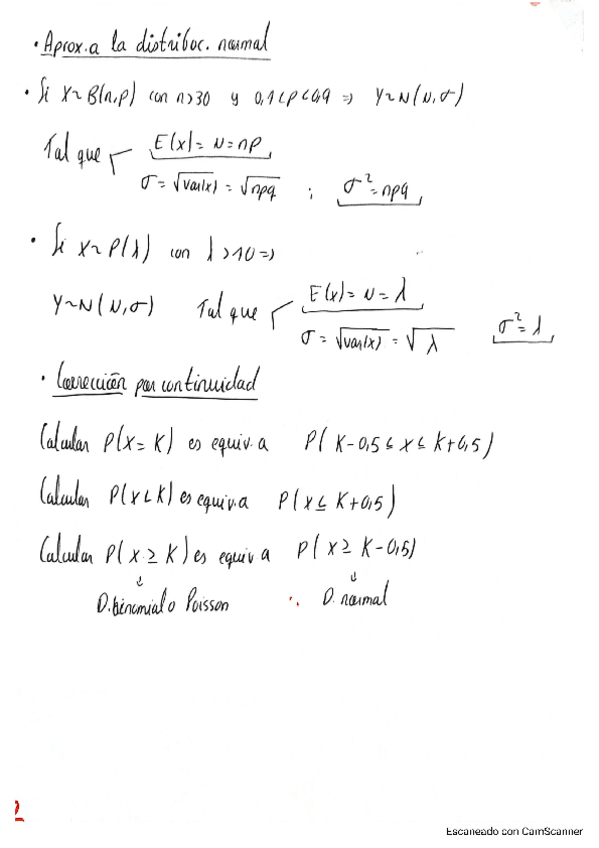 · Aprox. a la distriboc. normal
· Si X~B(n,p) con n>30 y 0,1<p<0,9 => Y~N(μ,σ)
Tal que E(x)= μ = np
σ = √var(x) = √npq ; σ²=npq
· Si X~P(λ) con λ>10 =>
Y~N(μ,σ) Tal que E(x)= μ = λ
σ = √var(x) = √λ σ²=λ
· Corrección por continuidad
Calcular P(X=K) es equiv. a P(K-0,5≤x≤K+0,5)
Calcular P(x≤K) es equiv. a P(x≤K+0,5)
Calcular P(x≥K) es equiv a P(x≥K-0,5)
↓ ↓
D. binomial o Poisson D. normal
2
Escaneado con CamScanner